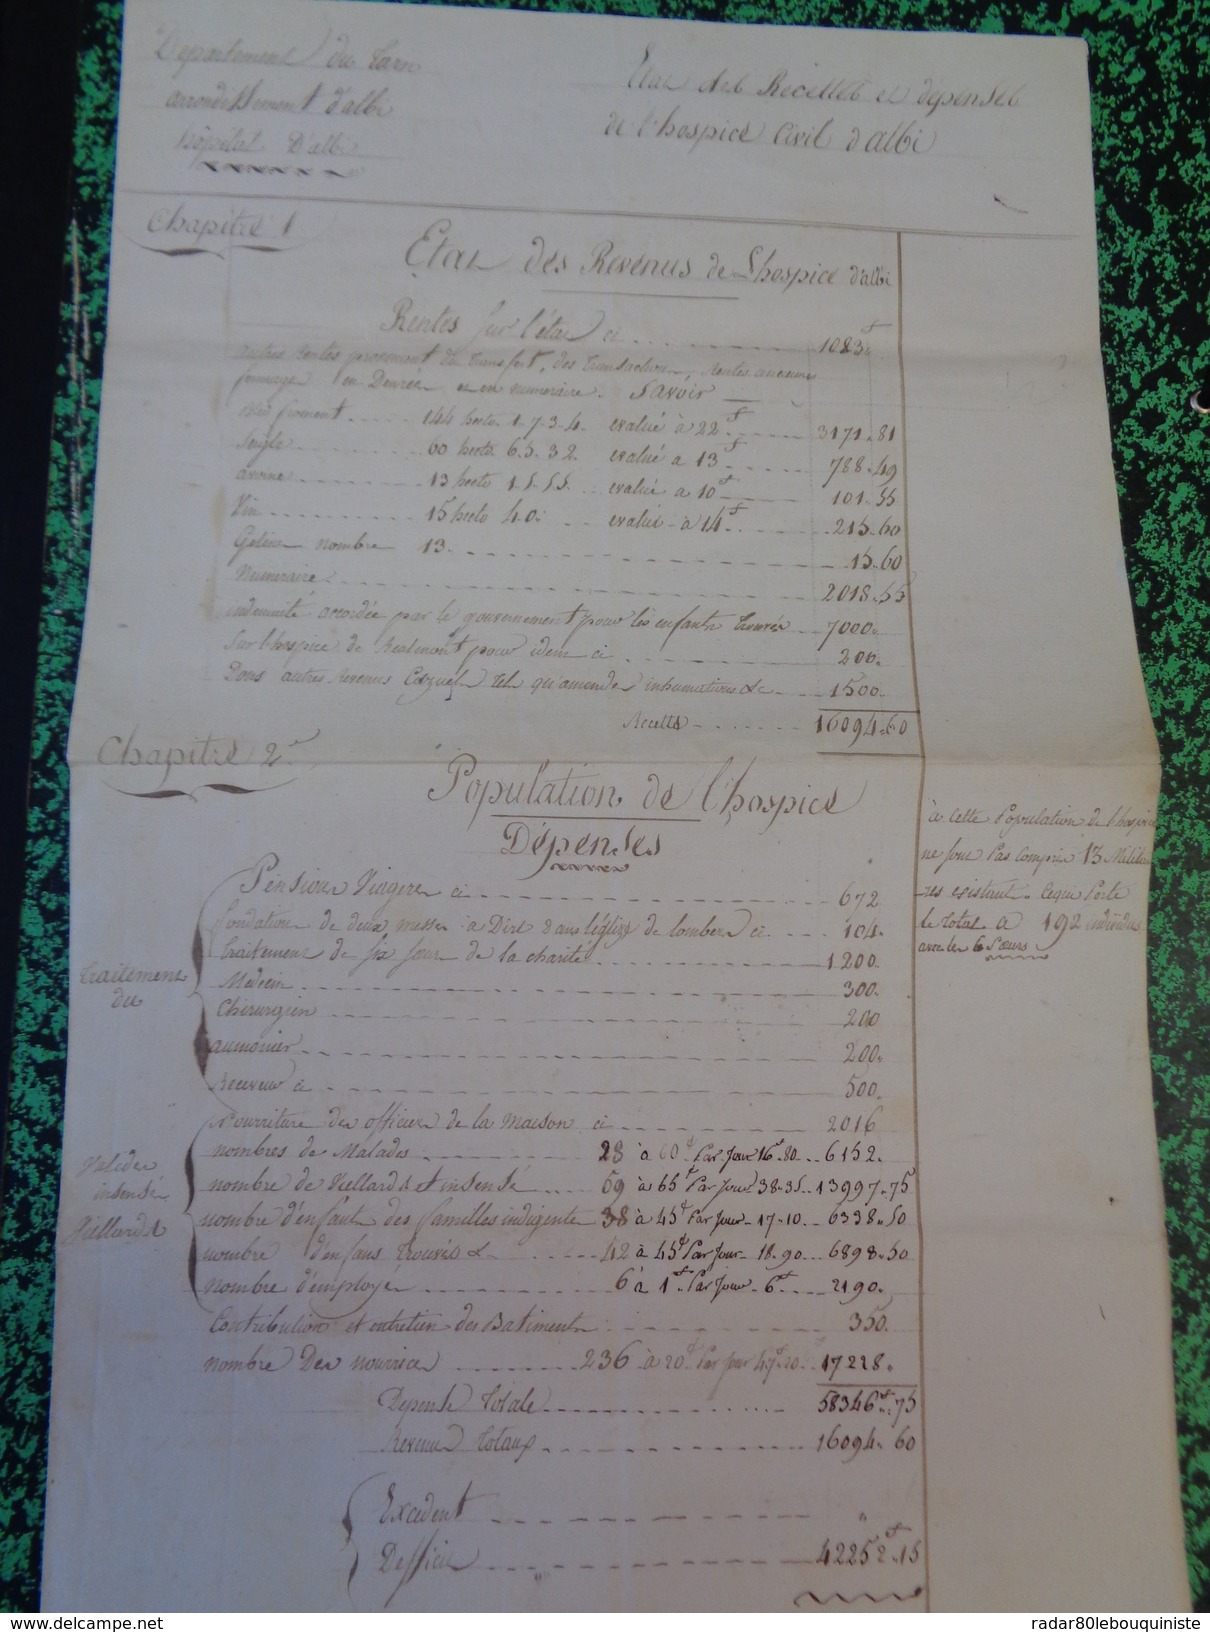 Departement du Tarn
arrondissement d'albi
hôpital D'albi
Etat des Recettes et dépenses
de l'hospice Civil d'albi
Chapitre 1
Etat des Revenus de L'hospice d'albi
Rentes sur l'état ci 1083
autres rentes provenant de transfert, des transactions, Rentes anciennes
en Denrée et en numeraire. Savoir
Bled froment 144 hecto. 1-7-3-4. evalué à 22 3171-81
Seigle 60 hecto 6.5.32. evalué a 13 788-49
avoine 13 hecto 1.5.55. evalué a 10 101-55
Vin 15 hecto 40. evalué à 14 215-60
Geline nombre 13 15-60
Numeraire 2018-55
indemnité accordée par le gouvernement pour les enfants trouvés 7000
Sur l'hospice de Realmont pour idem ci 200
Dons autres Revenus Cazuel tel qu'amende inhumations &c 1500
Recette 16094-60
Chapitre 2
Population de l'hospice
Dépenses
à cette Population de l'hospice
ne sont Pas compris 13 Militai
res existant. Ceque Porte
le total a 192 individus
avec les 6 Sœurs
Pension Viagere ci 672
fondation de deux messes à Dire dans l'église de lombers ci 104
traitement de six sœurs de la charité 1200
Traitement
des
Médecin 300
Chirurgien 200
aumonier 200
Receveur ci 500
Nourriture des officiers de la Maison ci 2016
nombres de Malades 28 à 60 Par Jour 16-80 6132
Valides
insensé
Viellards
nombre de Viellards et insensé 59 à 65 Par Jour 38-35 13997-75
nombre d'enfant des familles indigente 38 à 45 Par Jour 17-10 6338-50
nombre d'enfans trouvés & 42 à 45 Par Jour 18-90 6898-50
nombre d'employer 6 à 1 Par Jour 6 2190
Contribution et entretien des Batiments 350
nombre Des nourrices 236 à 20 Par Jour 47-20 17228
Depense Totale 58346-75
Revenus Totaux 16094-60
Excedent "
Defficit 42252-15
DELCAMPE.NET
radar80lebouquiniste